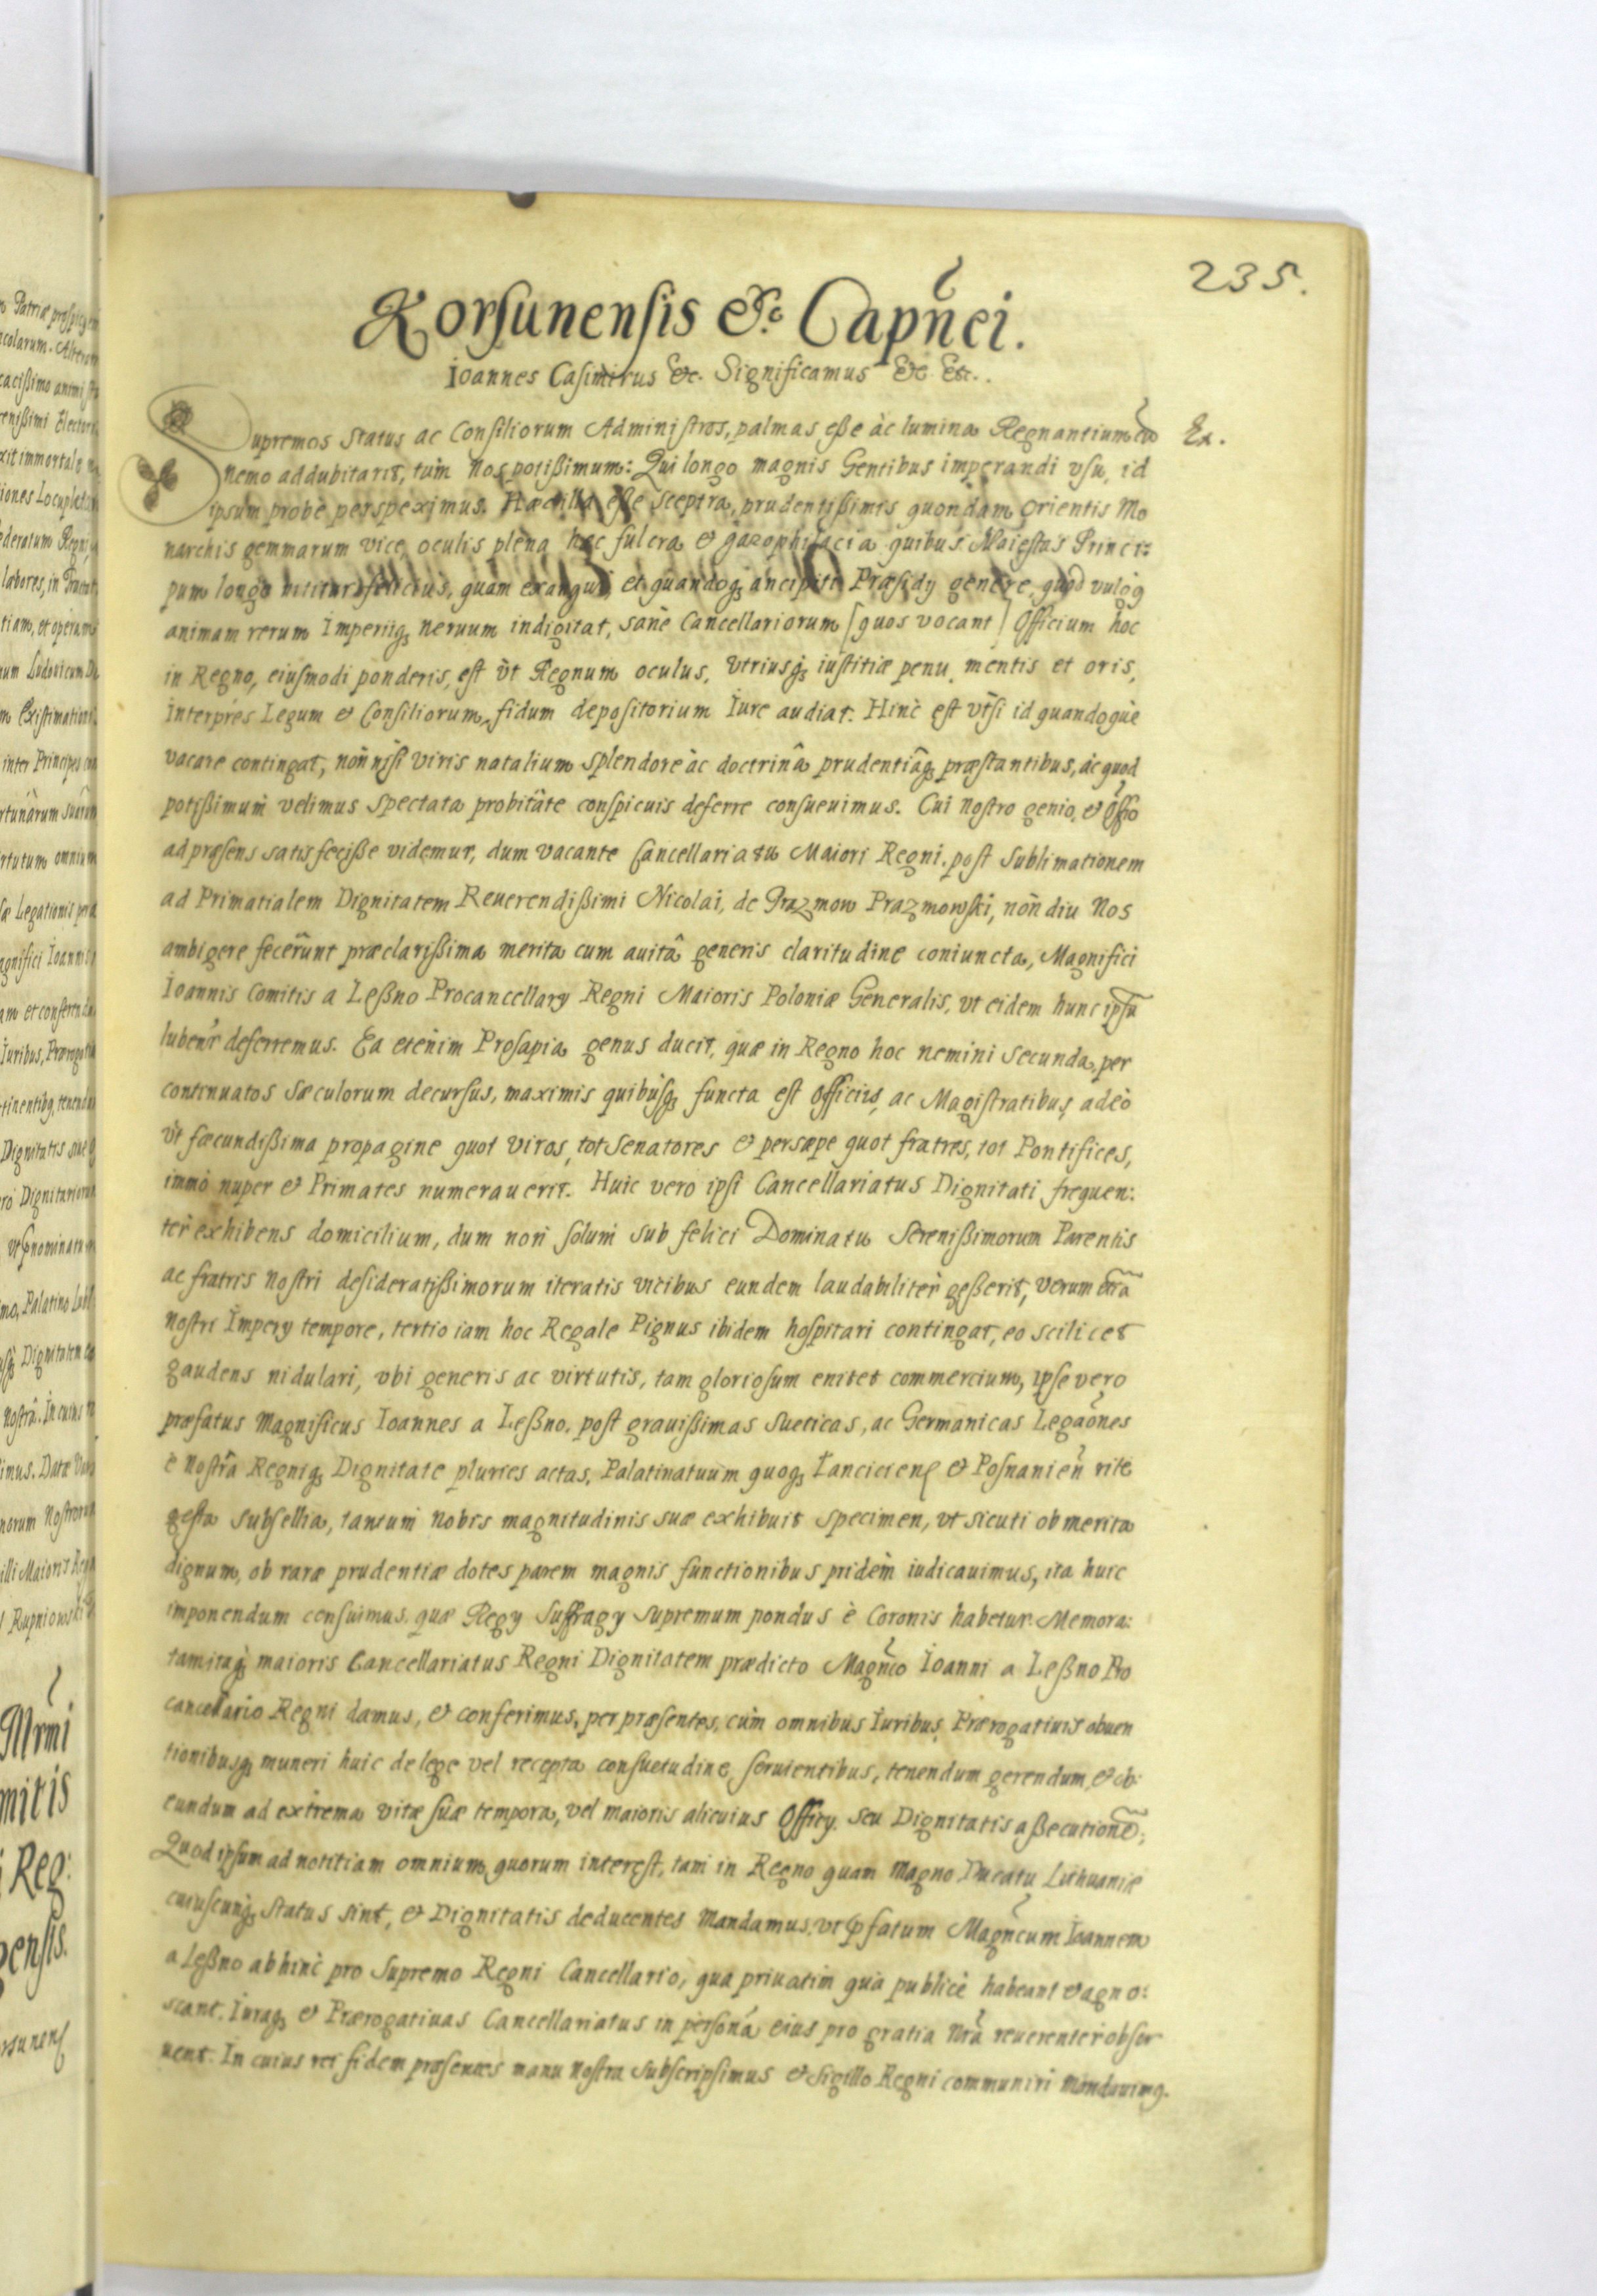 235.
Korsunensis &c Capnei.
Ioannes Casimirus &c. Significamus &c &c..
Supremos Status ac Consiliorum Administros, palmas eße àc lumina Regnantium Ex.
nemo addubitarit, tum Nos potißimum: Qui longo magnis Gentibus imperandi vsu, id
ipsum probè perspeximus. Hæc illa eße Sceptra, prudentißimis quondam Orientis Mo
narchis gemmarum vice oculis plena hæc fulcra & gazophilacia quibus Maiestas Princi:
pum longo nititur felicius, quam exangui et quandoq3 ancipiti Præsidy genere, quod vulgq
animam rerum Imperiiq3 neruum indigitat, sanè Cancellariorum [quos vocant] Officium hoc
in Regno, eiusmodi ponderis, est vt Regnum oculus, vtriusq3 iustitiæ penu, mentis et oris,
Interpres Legum & Consiliorum, fidum depositorium Iure audiat. Hinc est vtsi id quandoque
vacare contingat, non nisi viris natalium splendore àc doctrinâ prudentiâq3 præstantibus, àc quod
potißimum velimus Spectata probitâte conspicuis deferre consueuimus. Cui nostro genio, & Offio
ad præsens satisfeciße videmur, dum vacante Cancellariatu Maiori Regni, post Sublimationem
ad Primatialem Dignitatem Reuerendißimi Nicolai, de Prazmow Prazmowski, non diu Nos
ambigere fecerunt præclarißima merita cum auitâ generis claritudine coniuncta, Magnifici
Ioannis Comitis a Leßno Procancellary Regni Maioris Poloniæ Generalis, vt eidem hunc ipsu
lubenr deferremus. Ea etenim Prosapia genus ducit, quæ in Regno hoc nemini secunda, per
continuatos Sæculorum decursus, maximis quibusq3 functa est Officiis, ac Magistratibus, adeò
vt fæcundißima propagine quot viros, tot Senatores & persæpe quot fratres, tot Pontifices,
immò nuper & Primates numerauerit. Huic vero ipsi Cancellariatus Dignitati frequen:
ter exhibens domicilium, dum non solum sub felici Dominatu Serenißimorum Parentis
ac fratris Nostri desideratißimorum iteratis vicibus eundem laudabiliter geßerit, verum etia
Nostri Impery tempore, tertio iam hoc Regale Pignus ibidem hospitari contingat, eo scilicet
gaudens nidulari, vbi generis ac virtutis, tam gloriosum enitet commercium, ipse vero
præfatus Magnificus Ioannes a Leßno, post grauißimas Sueticas, ac Germanicas Legaones
è Nostra Regniq3 Dignitate pluries actas, Palatinatuum quoq3 Lanciciens & Posnanien rite
gesta Subsellia, tantum Nobis magnitudinis suæ exhibuit specimen, vt sicuti ob merita
dignum, ob raræ prudentiæ dotes parem magnis functionibus pridem iudicauimus, ita huic
imponendum censuimus, quæ Regy Suffragy Supremum pondus è Coronis habetur. Memora:
tam itaq3 maioris Cancellariatus Regni Dignitatem prædicto Magnco Ioanni a Leßno Pro
cancellario Regni damus, & conferimus, per præsentes, cum omnibus Iuribus, Prærogatiuis obuen
tionibusq3 muneri huic de lege vel recepta consuetudine seruientibus, tenendum gerendum, & ob:
eundum ad extrema vitæ suæ tempora, vel maioris alicuius Officy seu Dignitatis aßecutione;
Quod ipsum ad notitiam omnium quorum interest, tam in Regno quam Magno Ducatu Lithuaniæ
cuiuscunq3 Status sint, & Dignitatis deducentes Mandamus, vt pfatum Magncum Ioannem
a Leßno abhinc pro Supremo Regni Cancellario, qua priuatim quà publicè habeant & agno:
scant. Iuraq3 & Prærogatiuas Cancellariatus in persona eius pro gratia Nra reuerenter obser
uent. In cuius rei fidem præsentes manu Nostra Subscripsimus & Sigillo Regni communiri Mandauimq.